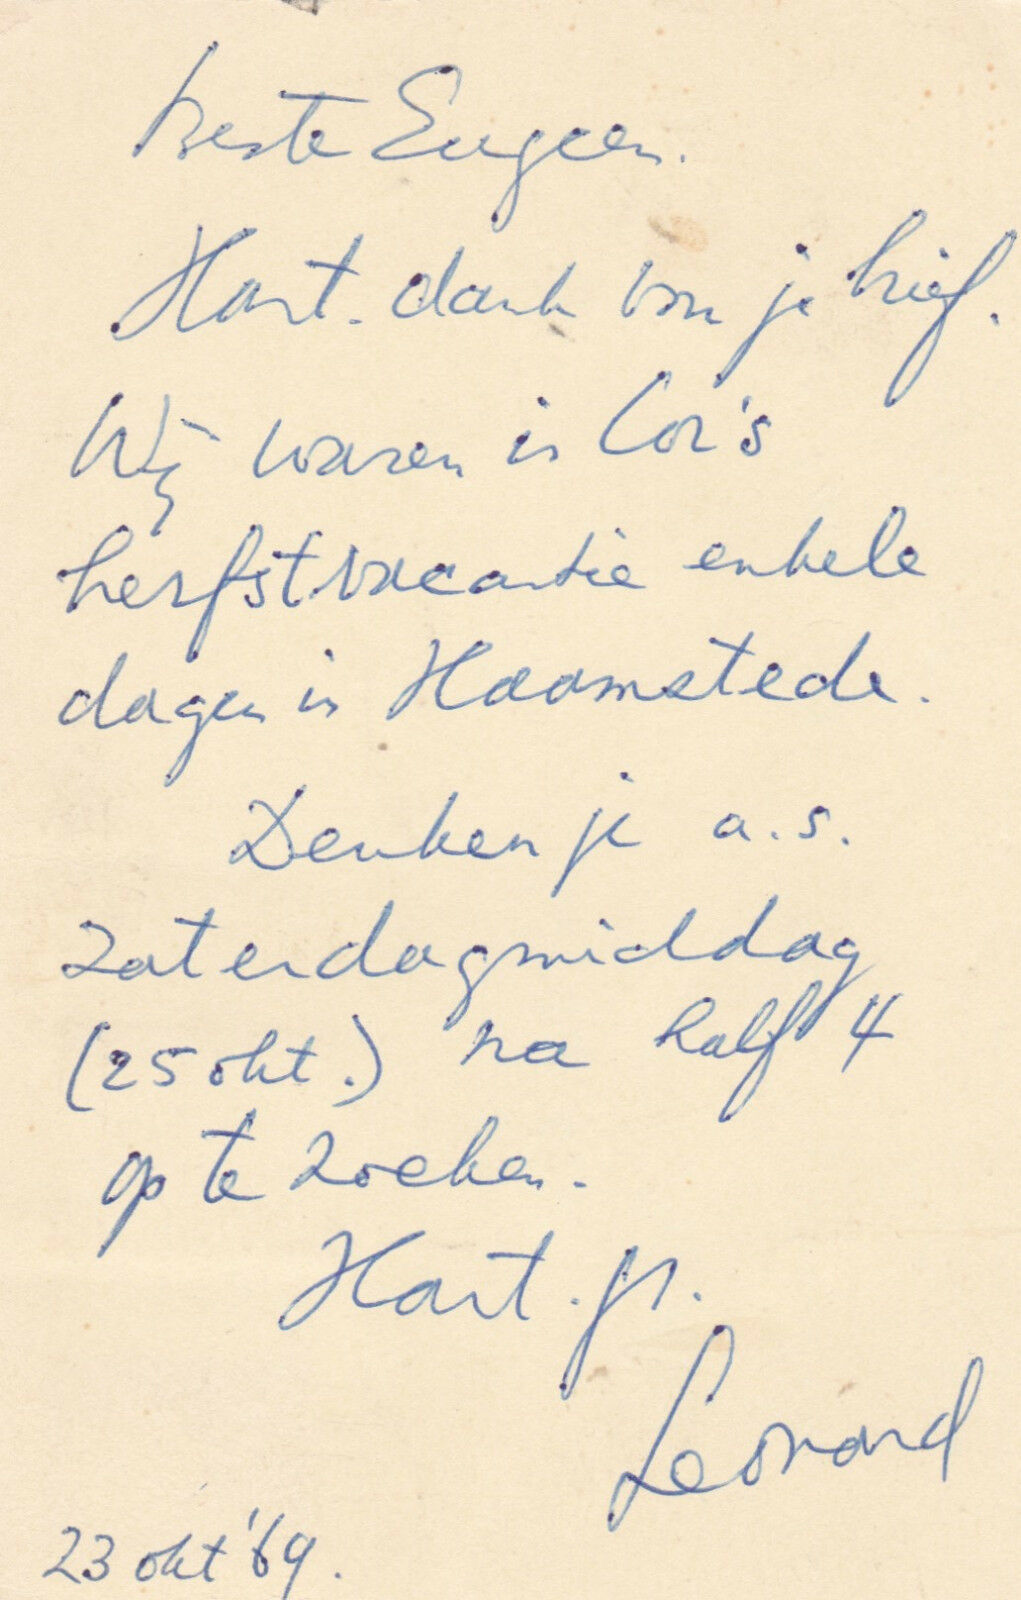 beste Eugeen.
Hart. dank voor je brief.
Wij waren in Cor's
herfstvacantie enkele
dagen in Haamstede.
Denken je a.s.
zaterdagmiddag
(25 okt.) na half 4
op te zoeken.
Hart. gr.
Leonard
23 okt '69.